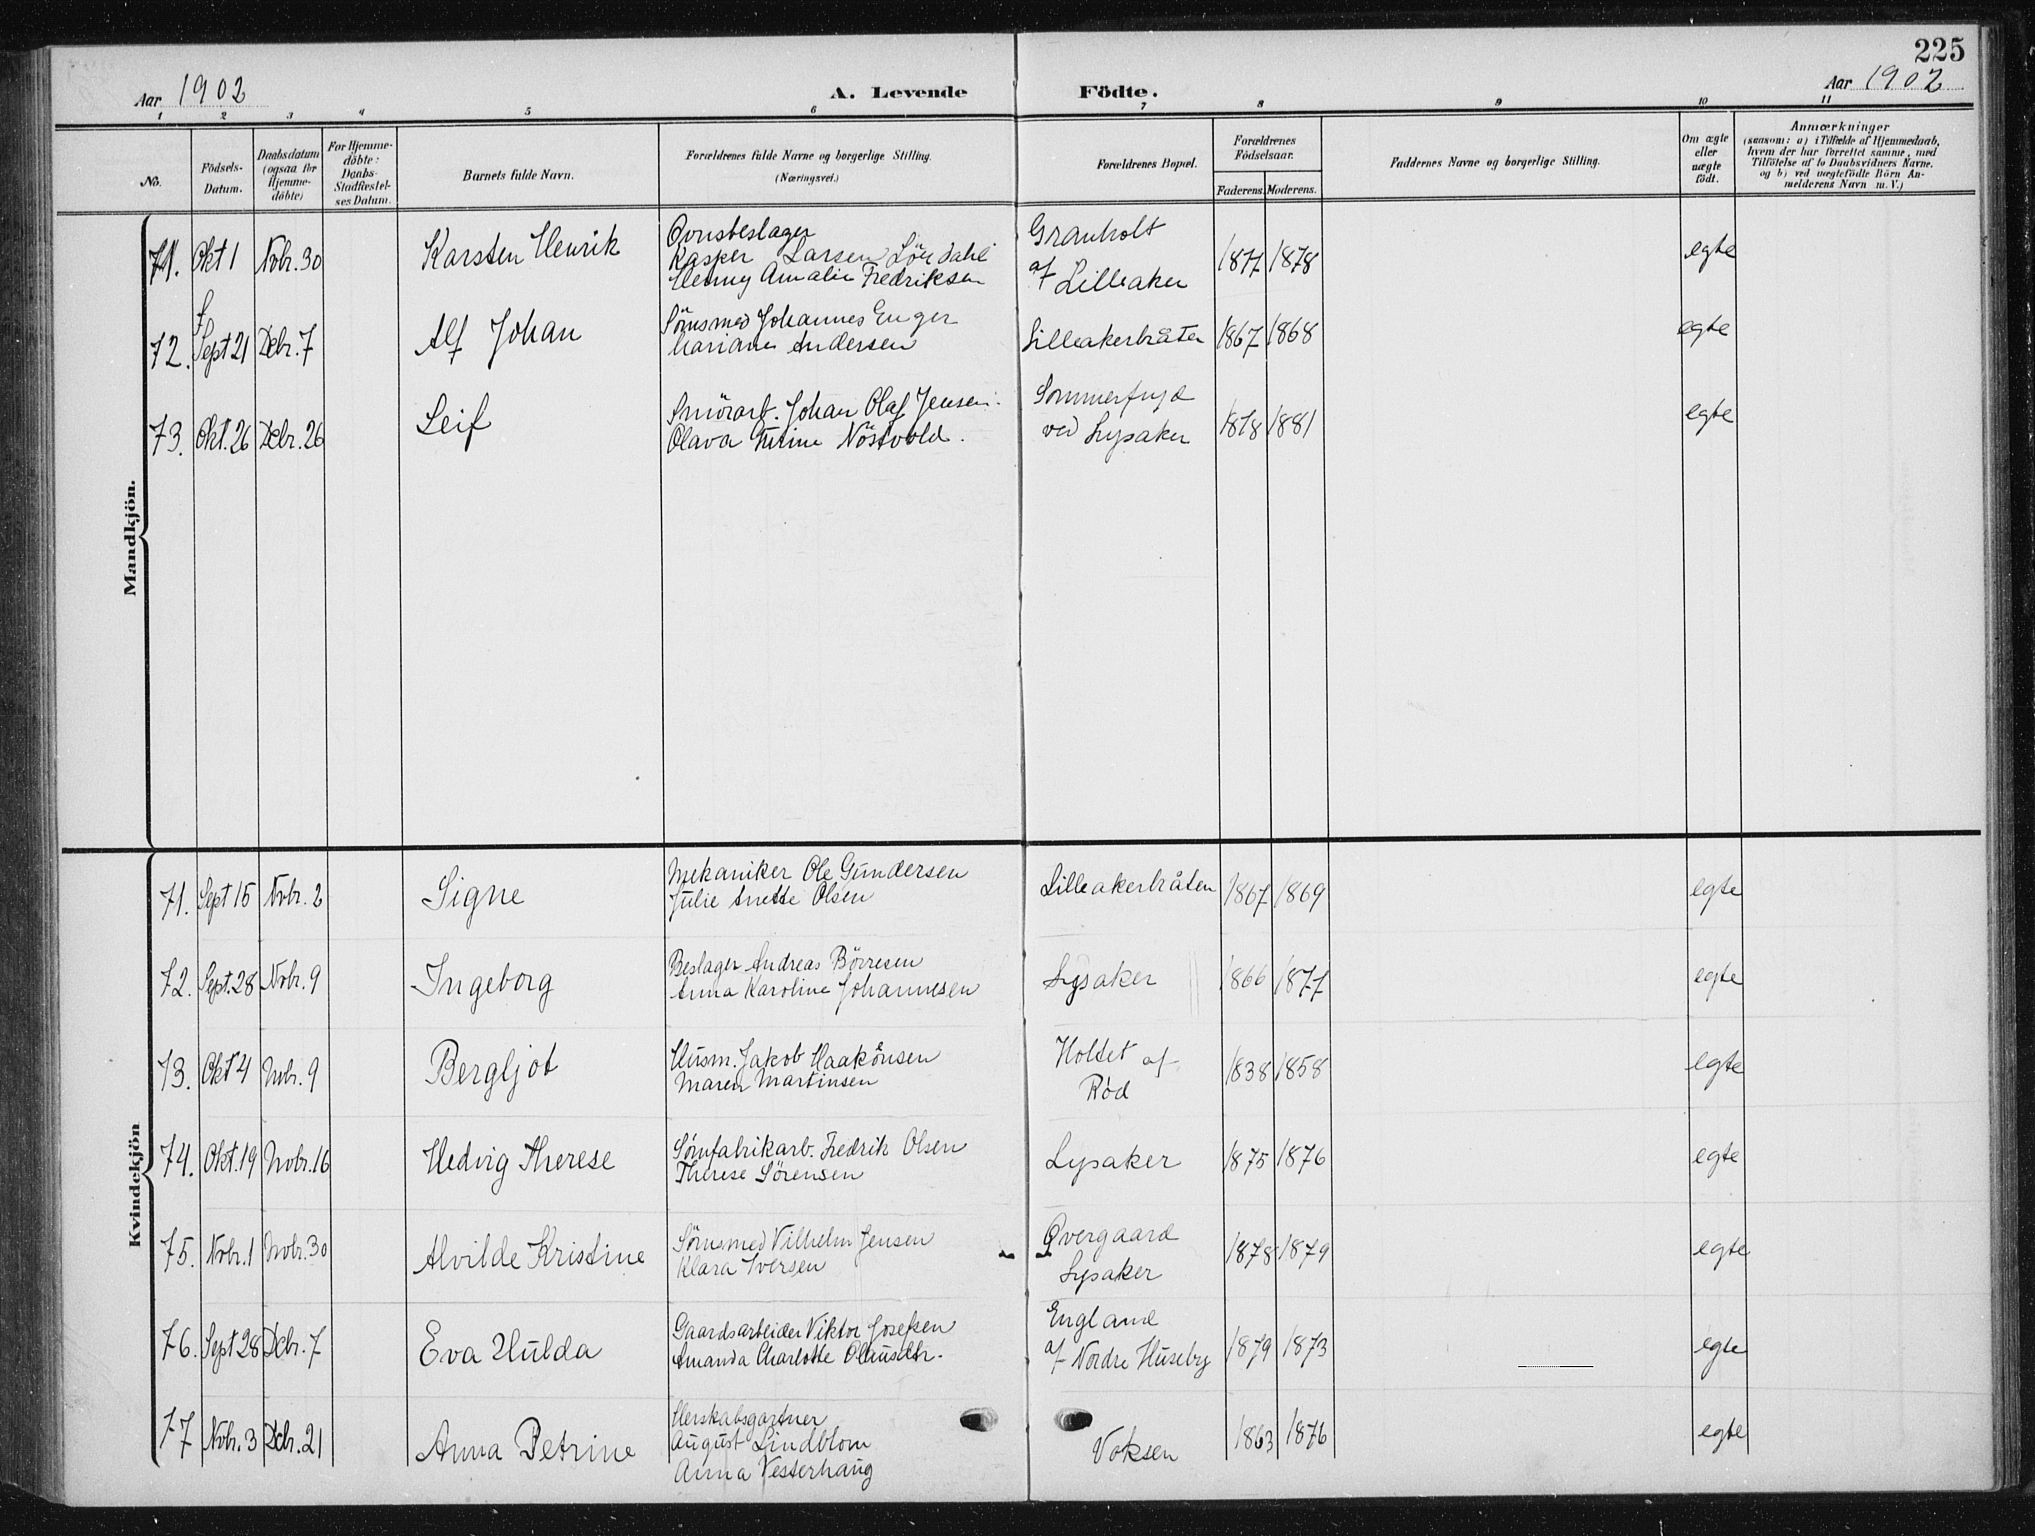 225
Aar 1902
A. Levende Födte.
Aar 1902
1 2 3 4 5 6 7 8 9 10 11
No.
Födsels-
Datum.
Daabsdatum
(ogsaa for
Hjemme-
döbte)
For Hjemme-
döbte:
Daabs-
Stadfæstel-
ses Datum.
Barnets fulde Navn.
Forældrenes fulde Navne og borgerlige Stilling.
(Næringsvei.)
Forældrenes Bopæl.
Forældrenes
Födselsaar.
Faderens. Moderens.
Faddernes Navne og borgerlige Stilling.
Om ægte
eller
uægte
födt.
Anmærkninger
(saasom: a) i Tilfælde af Hjemmedaab,
hvem der har forrettet samme, med
Tilföielse af to Daabsvidners Navne.
og b) ved uægtefödte Börn An-
melderens Navn m. V.)
Mandkjön.
71. Okt 1 Nobr. 30 Karsten Henrik
Ovnsbeslager
Kasper Larsen Löndahl
Henny Amalie Fredriksen
Granholt
af Lilleaker
1877 1878 egte
72. Sept 21 Debr. 7 Alf Johan
Sömsmed Johannes Enger
Mariane Andersen
Lilleakerbråten 1867 1868 egte
73. Okt. 26 Debr. 26 Leif
Smörarb. Johan Olaf Jensen.
Olava Nöstvold.
Sommerfryd
ved Lysaker
1878 1881 egte
Kvindekjön
71. Sept 15 Nobr. 2 Signe
Mekaniker Ole Gundersen
Julie Anette Olsen
Lilleakerbråten 1867 1869 egte
72. Sept. 28 Nobr. 9 Ingeborg
Beslager Andreas Börresen
Anna Karoline Johannesen
Lysaker 1866 1877 egte
73. Okt 4 Nobr. 9 Bergljot
Husm. Jakob Haakonsen
Maren Martinsen
Holtet af
Röd
1838 1858 egte
74. Okt. 19 Nobr. 16 Hedvig Therese
Sömfabrikarb. Fredrik Olsen
Therese Sörensen
Lysaker 1875 1876 egte
75. Nobr. 1 Nobr. 30 Alvilde Kristine
Sömsmed Vilhelm Jensen
Klara Iversen
Overgaard
Lysaker
1878 1879 egte
76. Sept 28 Debr. 7 Eva Hulda
Gaardsarbeider Viktor Josefsen
Amanda Charlotte
England
af Nordre Huseby
1879 1873 egte
77 Nobr. 3 Debr. 21 Anna Petrine
Herskabsgartner
August Lindblom
Anna Vesterhaug
Voksen 1863 1876 egte